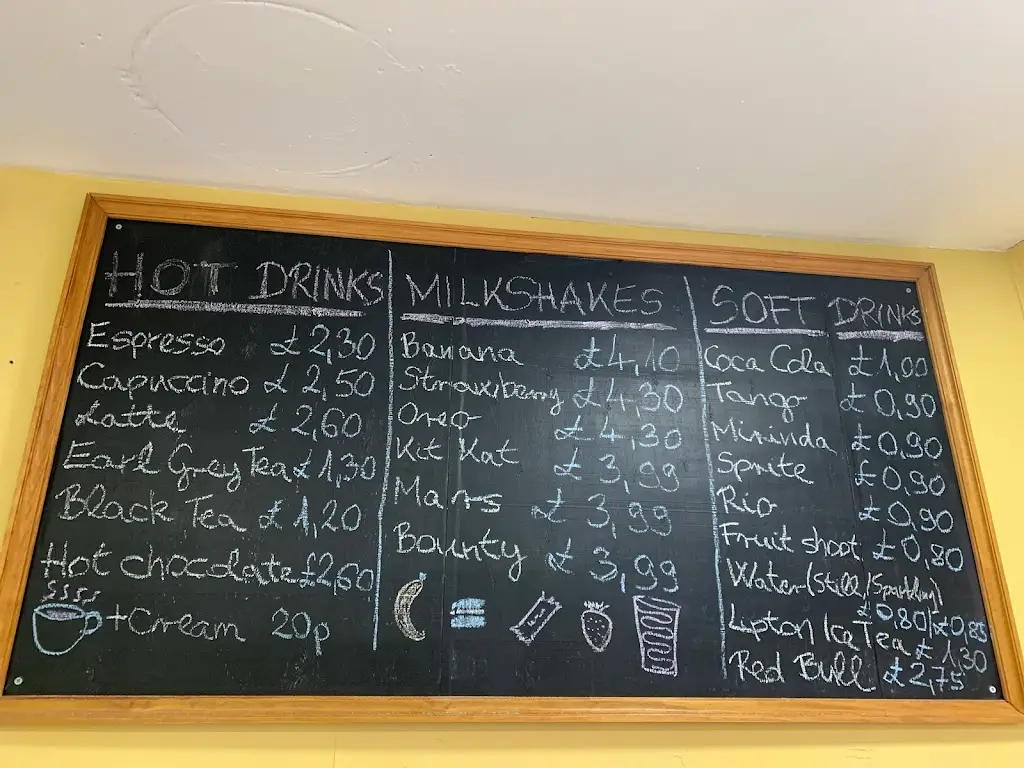 HOT DRINKS
Espresso £2,30
Capuccino £2,50
Latte £2,60
Earl Grey Tea £1,30
Black Tea £1,20
Hot chocolate £2,60
+Cream 20p
MILKSHAKES
Banana £4,10
Strawberry £4,30
Oreo £4,30
Kit Kat £3,99
Mars £3,99
Bounty £3,99
SOFT DRINKS
Coca Cola £1,00
Tango £0,90
Mirinda £0,90
Sprite £0,90
Rio £0,90
Fruit shoot £0,80
Water (Still/Sparkling)
£0,80/£0,85
Lipton Ice Tea £1,30
Red Bull £2,75